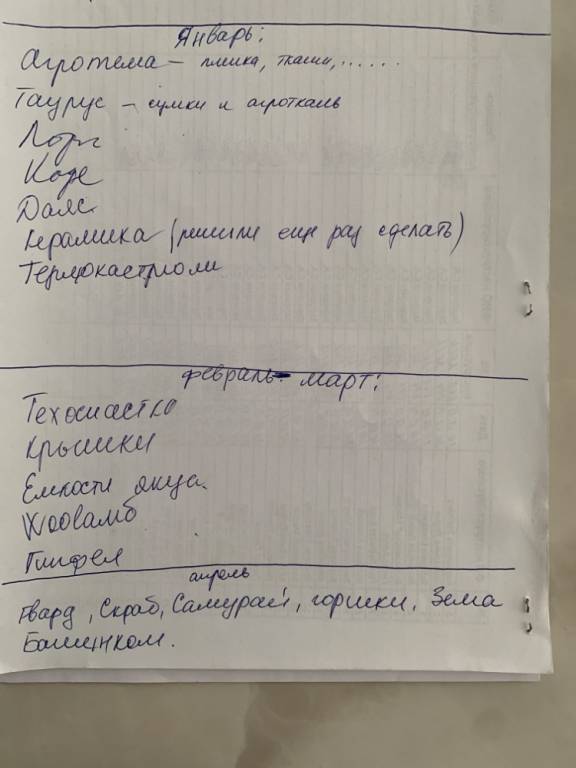 Январь:
Агротема – пленка, ткани,......
Таурус – сумки и агроткань
Лори
Коде
Даяс
Керамика (решили еще раз сделать)
Термокастрюли
февраль - март:
Техоснастка
Крышки
Емкости акца.
Гипфел
апрель
Гвард, Скраб, Самурай, горшки, Зема
Башинком.